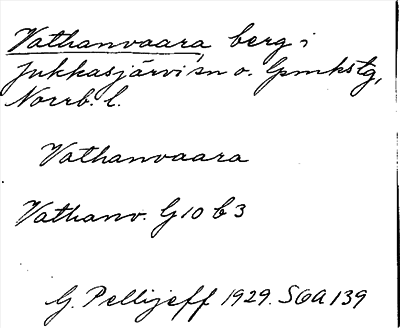 Vathanvaara, berg i
Jukkasjärvi sn o. Gpmkstg,
Norrb. l.
Vathanvaara
Vathanv. G10 b3
G. Pellijeff 1929. SGA 139